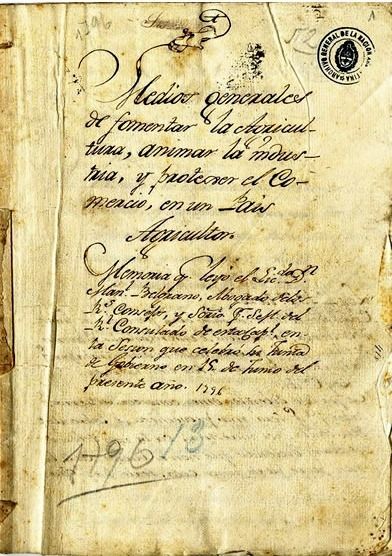 1796
52
1
ARCHIVO GENERAL DE LA NACION
ARGENTINA
Medios generales
de fomentar la Agricul-
tura, animar la indus-
tria, y proteger el Co-
mercio, en un Pais
Agricultor.
Memoria q. leyó el Licdo. Dn.
Manl. Belgrano, Abogado de los
Rs. Consejs, y Srio
Rl. Consulado de esta Capl. en
la Sesion que celebró su Junta
de Govierno en 15 de Junio del
presente año. 1796
13
1796